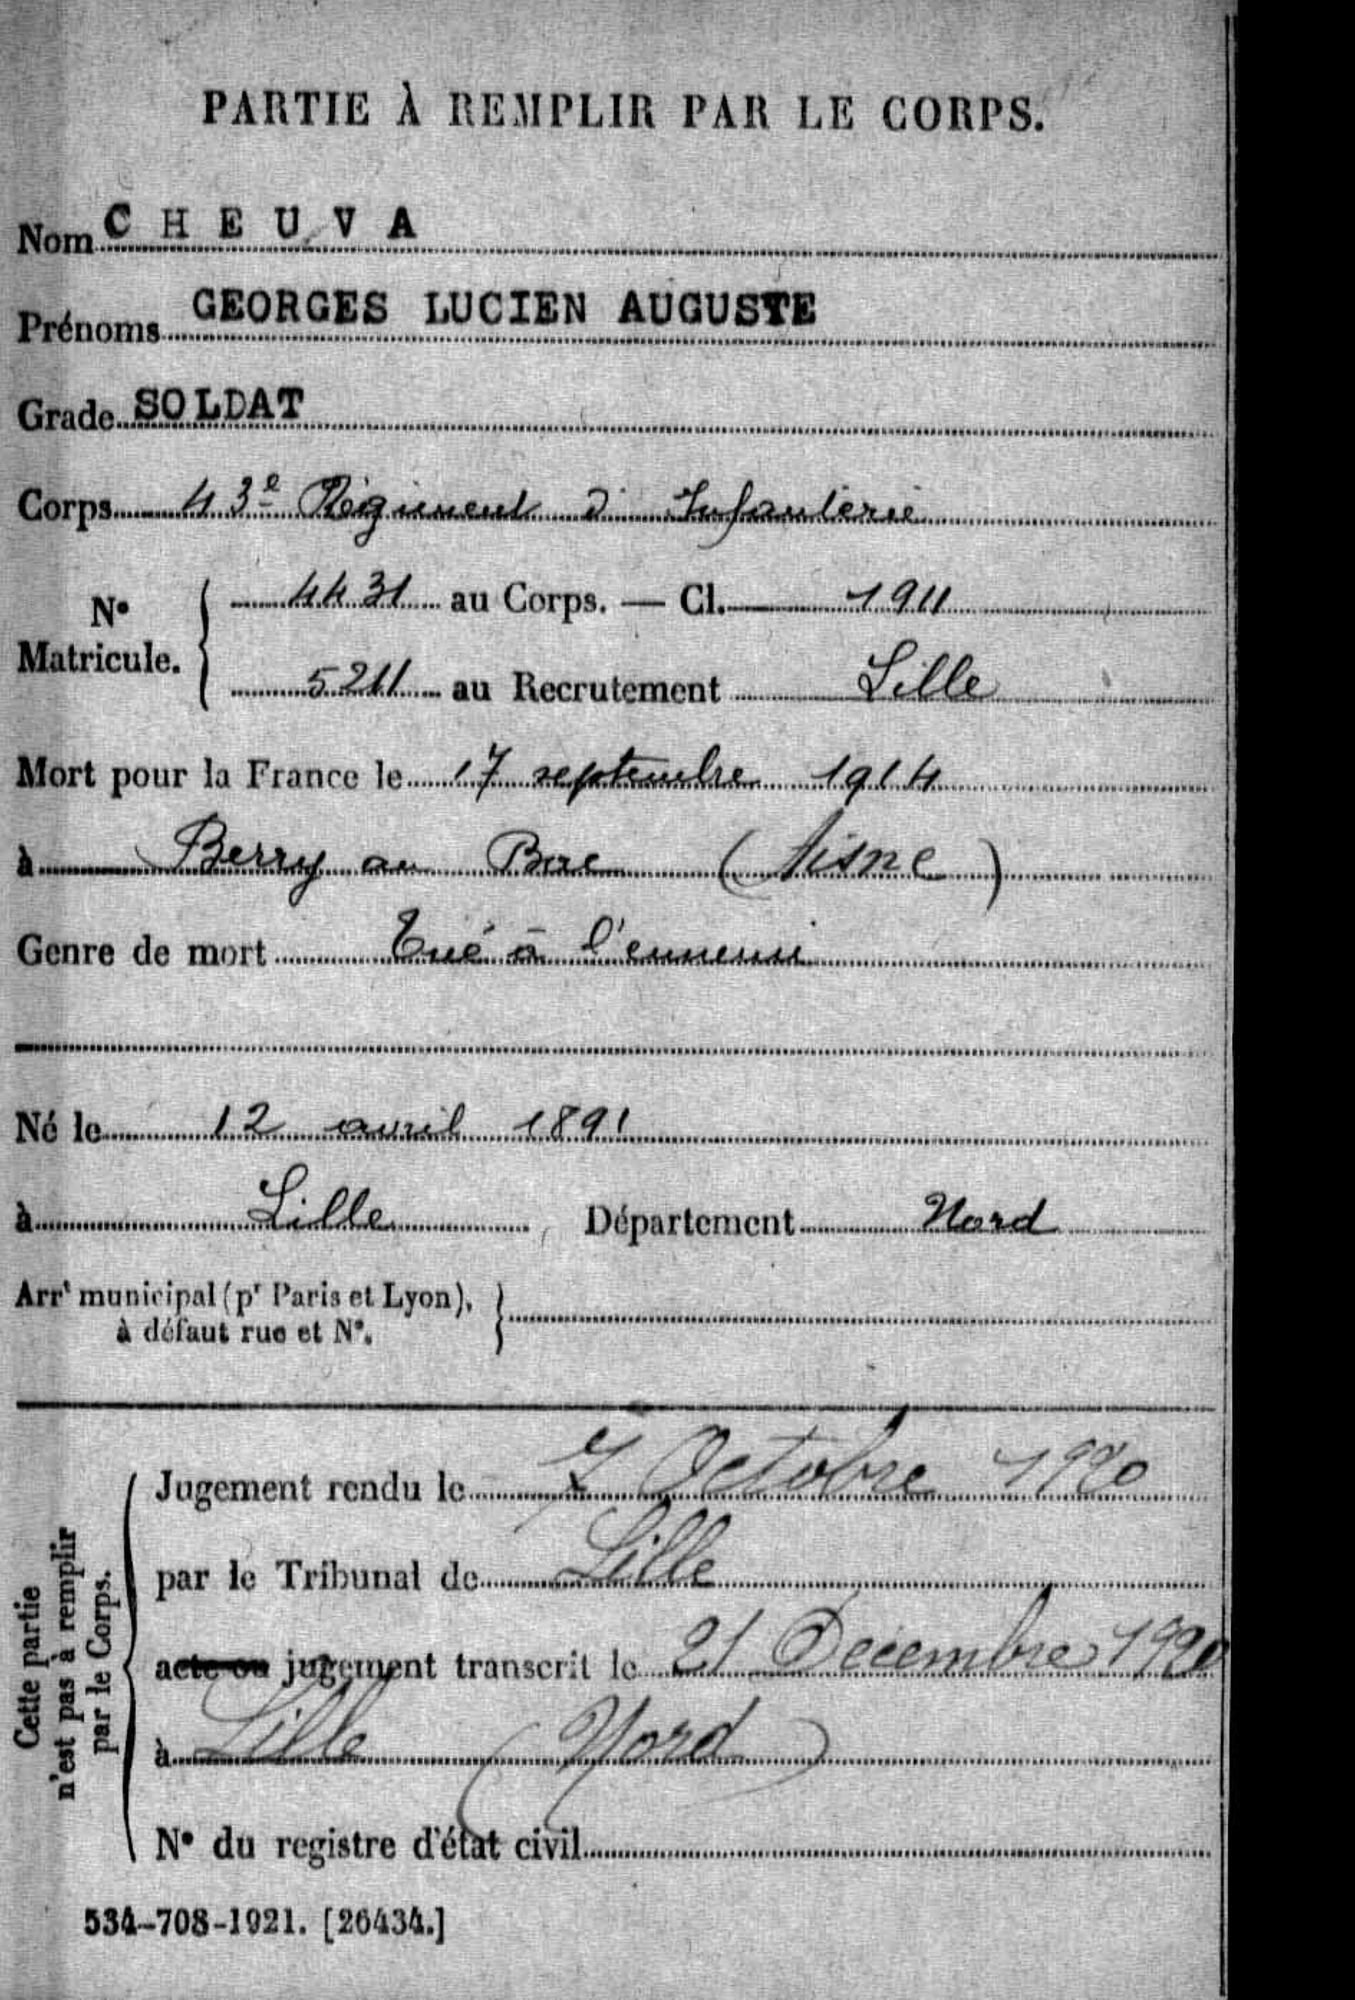 PARTIE À REMPLIR PAR LE CORPS.
Nom CHEUVA
Prénoms GEORGES LUCIEN AUGUSTE
Grade SOLDAT
Corps 43e Régiment d'Infanterie
N° Matricule. 4431 au Corps. — Cl. 1911
5211 au Recrutement Lille
Mort pour la France le 17 septembre 1914
à Berry au Bac (Aisne)
Genre de mort Tué à l'ennemi
Né le 12 avril 1891
à Lille Département Nord
Arrt municipal (pr Paris et Lyon),
à défaut rue et N°.
Cette partie
n'est pas à remplir
par le Corps.
Jugement rendu le 7 Octobre 1920
par le Tribunal de Lille
acte ou jugement transcrit le 21 Décembre 1920
à Lille (Nord)
N° du registre d'état civil
534-708-1921. [26434.]